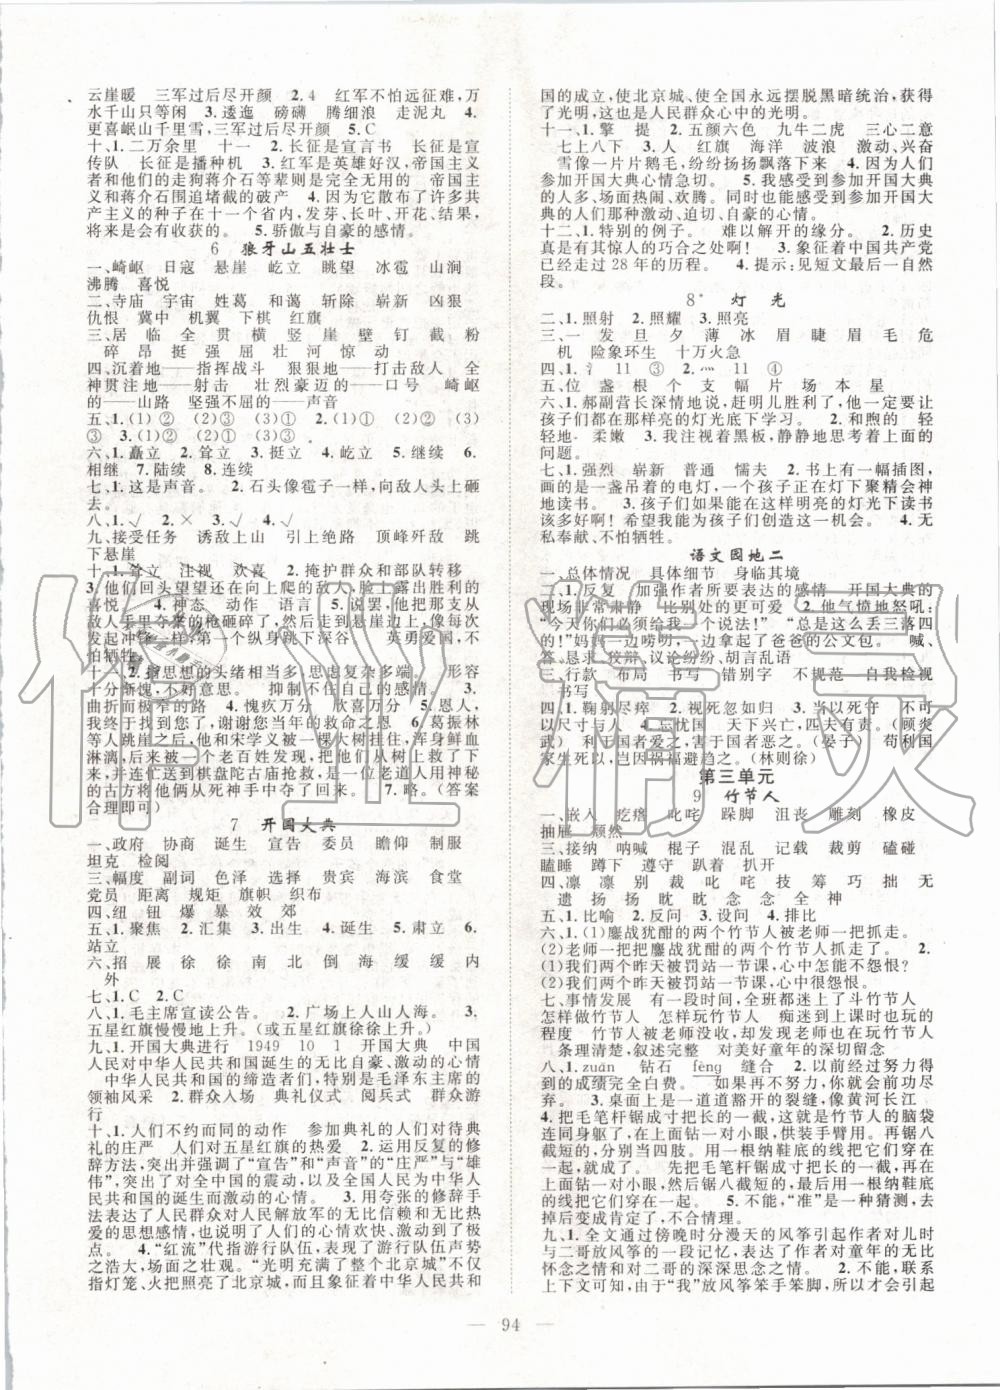 云崖暖　三军过后尽开颜　2.4　红军不怕远征难,万
水千山只等闲　3.逶迤　磅礴　腾细浪　走泥丸　4.
更喜岷山千里雪,三军过后尽开颜　5.C
十、1.二万余里　十一　长征是宣言书　长征是宣
传队　长征是播种机　2.红军是英雄好汉,帝国主义
者和他们的走狗蒋介石等辈则是完全无用的　帝国主
义和蒋介石围追堵截的破产　4.因为它散布了许多共
产主义的种子在十一个省内,发芽、长叶、开花、结果,
将来是会有收获的。　5.骄傲与自豪的感情。
6　狼牙山五壮士
一、崎岖　日寇　悬崖　屹立　眺望　冰雹　山涧
沸腾　喜悦
二、寺庙　宇宙　姓葛　和蔼　斩除　崭新　凶狠
仇恨　冀中　机翼　下棋　红旗
三、居　临　全　贯　横　竖　崖　壁　钉　截　粉
碎　昂　挺　强　屈　壮　河　惊　动
四、沉着地——指挥战斗　狠狠地——打击敌人　全
神贯注地——射击　壮烈豪迈的——口号　崎岖的
——山路　坚强不屈的——声音
五、(1)②　(2)③　(3)①　1.(1)①　(2)②　(3)
③　2.(1)①　(2)②　(3)③
六、1.矗立　2.耸立　3.挺立　4.屹立　5.继续　6.
相继　7.陆续　8.连续
七、1.这是声音。　2.石头像雹子一样,向敌人头上砸
去。
八、1.√　2.×　3.√　4.√
九、接受任务　诱敌上山　引上绝路　顶峰歼敌　跳
下悬崖
十、1.耸立　注视　欢喜　2.掩护群众和部队转移
3.他们回头望望还在向上爬的敌人,脸上露出胜利的
喜悦　4.神态　动作　语言　5.说罢,他把那支从
敌人手里夺来的枪砸碎了,然后走到悬崖边上,像每次
发起冲锋一样,第一个纵身跳下深谷　英勇爱国,不
怕牺牲
十一、2.指思想的头绪相当多,思虑复杂多端。　形容
十分惭愧,不好意思。　抑制不住自己的感情。　3.
曲折而极窄的路　4.愧疚万分　欣喜万分　5.恩人,
我终于找到您了,谢谢您当年的救命之恩　6.葛振林
等人跳崖之后,他和宋学义被一棵大树挂住,浑身鲜血
淋漓,后来被一个老百姓发现了,老乡把他们救了下
来,并送到棋盘陀古庙抢救,是一个老道人用神秘
的古方将他们从死神手中夺了回来。　7.略。(答案
合理即可)
7　开国大典
一、政府　协商　诞生　宣告　委员　瞻仰　制服
坦克　检阅
三、幅度　副词　色泽　选择　贵宾　海滨　食堂
党员　距离　规矩　旗帜　织布
四、纽　钮　爆　暴　效　郊
五、1.聚焦　2.汇集　3.出生　4.诞生　5.肃立　6.
站立
六、招　展　徐　徐　南　北　倒　海　缓　缓　内
外
七、1.C　2.C
八、1.毛主席宣读公告。　2.广场上人山人海。　3.
五星红旗慢慢地上升。(或五星红旗徐徐上升。)
九、1.开国大典进行　1949　10　1　开国大典　中国
人民对中华人民共和国诞生的无比自豪、激动的心情
中华人民共和国的缔造者们,特别是毛泽东主席的
领袖风采　2.群众入场　典礼仪式　阅兵式　群众游
行
十、1.人们不约而同的动作　参加典礼的人们对待典
礼的庄严　人们对五星红旗的热爱　2.运用反复的修
辞方法,突出并强调了“宣告”和“声音”的“庄严”与“雄
伟”,表达对全中国的震动,以及全国人民对中华人民
共和国的诞生而激动的心情。　3.用夸张的修辞手法
表达了人民群众对人民解放军的无比信赖和无比热爱
的思想感情,也说明了人们的心情欢快、激动到了极
点。　4.“红流”代指游行队伍,表现了游行队伍声势
之浩大,场面之壮观。　“光明充满了整个北京城”不仅
指灯笼、火把照亮了北京城,而且象征着中华人民共和
国的成立,使北京城、使全国永远摆脱黑暗统治,获得
了光明,这也是人民群众心中的光明。
十一、1.擎　提　2.五颜六色　九牛二虎　三心二意
七上八下　3.人　红旗　海洋　波浪　激动、兴奋
雪像一片片鹅毛,纷纷扬扬飘落下来　4.因为人们
参加开国大典心情急切。　5.我感受到参加开国大典
的人多、场面热闹、欢腾。　同时也能感受到参加开国
大典的人们那种激动、迫切、自豪的心情。
十二、1.特别的例子。　难以解开的缘分。　2.历史
真是有惊人的巧合之处啊!　3.象征着中国共产党
已经走过28年的历程。　4.提示:见短文最后一个自
然段。
8*　灯　光
二、1.照射　2.照耀　3.照亮
三、一　发　旦　夕　薄　冰　眉　睫　眉　毛　危
机　险象环生　十万火急
四、1.氵　11　③　2.灬　11　④
五、位　盏　根　个　支　幅　片　场　本　星
六、1.郝副营长深情地说,赶明儿胜利了,他一定要让
孩子们都在那样亮的灯光底下学习。　2.和煦的　轻
轻地　柔嫩　3.我注视着黑板,静静地思考着上面的
问题。
七、1.强烈　崭新　普通　懦夫　2.书上有一幅插图,
画的是一盏吊着的电灯,一个孩子正在灯下聚精会神
地读书。　3.孩子们如果能在这样明亮的灯光下读书
该多好啊!　希望我能为孩子们创造这一机会。　4.无
私奉献、不怕牺牲。
语文园地二
一、总体情况　具体细节　身临其境
二、1.反复　加强作者所要表达的感情　开国大典的
现场非常肃静　比别处的更可爱　2.他气愤地怒吼:
“今天你们必须给我一个说法!”　“总是这么丢三落四
的!”妈妈一边唠叨,一边拿起了爸爸的公文包。　喊、
答、恳求、狡辩、议论纷纷、胡言乱语
三、行款　布局　书写　错别字　不规范　自我检视
书写
四、1.鞠躬尽瘁　2.视死忽如归　3.当以死守　不可
以尺寸与人　4.忘忧国　天下兴亡,匹夫有责。(顾炎
武)　利于国者爱之,害于国者恶之。(晏子)　苟利国
家生死以,岂因祸福避趋之。(林则徐)
第三单元
9　竹节人
一、嵌入　疙瘩　叱咤　跺脚　沮丧　雕刻　橡皮
抽屉　颓然
三、接纳　呐喊　棍子　混乱　记载　裁剪　磕碰
瞌睡　蹲下　遵守　趴着　扒开
四、凛　凛　别　裁　叱　咤　技　筹　巧　拙　无
遗　扬　扬　眈　眈　念　念　全　神
五、1.比喻　2.反问　3.设问　4.排比
六、1.(1)鏖战犹酣的两个竹节人被老师一把抓走。
(2)老师一把把鏖战犹酣的两个竹节人抓走了。　2.
(1)我们两个昨天被罚站一节课,心中怎能不怨恨?
(2)我们两个昨天被罚站一节课,心中很怨恨。
七、事情发展　有一段时间,全班都迷上了斗竹节人
怎样做竹节人　怎样玩竹节人　痴迷到上课时也玩的
程度　竹节人被老师没收,却发现老师也在玩竹节人
条理清楚,叙述完整　对美好童年的深切留念
八、1.zuān　钻石　fèng　缝合　2.以前经过努力得
到的成绩完全白费。　如果再不努力,就会前功尽
弃。　3.桌面上是一道道豁开的裂痕,像黄河长江
4.把毛笔杆锯成寸把长的一截,这就是竹节人的脑袋
连同身躯了,在上面钻一对小眼,供装手臂用。再锯八
截短的,当四肢。　用一根纳鞋底的线把它们穿在
一起,就成了。　先把毛笔杆锯成寸把长的一截,在
上面钻一对小眼,再锯八截短的,最后用一根纳鞋底
的线把它们穿在一起。　5.不能,“准”是一种猜测,去
掉后变成肯定了,不合情理。
九、1.全文通过傍晚时分漫天的风筝引起作者对儿时
与二哥放风筝的一段记忆,表达了作者对童年的无比
怀念之情和对二哥的深深思念之情。　2.不能,联系
上下文可知,由于“我”放风筝笨手笨脚,所以才会引起
— 94 —
作业精灵